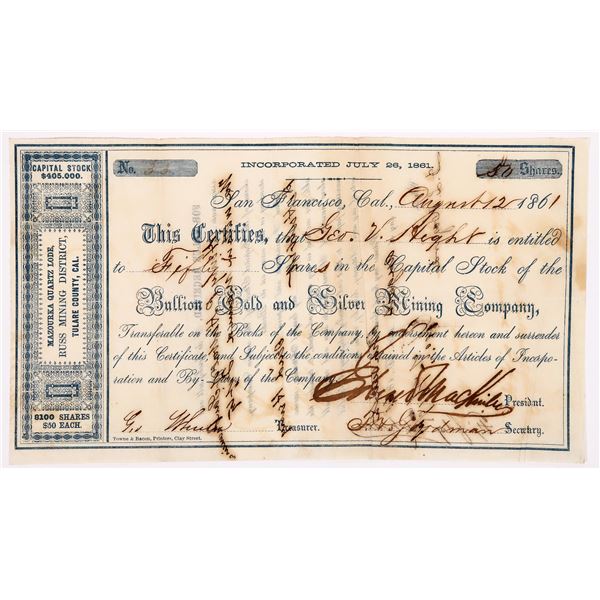 CAPITAL STOCK
$405.000.
MAZOURKA QUARTZ LODE,
RUSS MINING DISTRICT,
TULARE COUNTY, CAL.
8100 SHARES
$50 EACH.
No. 22
INCORPORATED JULY 26, 1861.
50 Shares.
San Francisco, Cal., August 12 1861
This Certifies, that Geo. V. Hight is entitled
to Fifty Shares in the Capital Stock of the
Bullion Gold and Silver Mining Company,
Transferable on the Books of the Company, by endorsement hereon and surrender
of this Certificate, and Subject to the conditions contained in the Articles of Incorpo-
ration and By-Laws of the Company.
President.
Treasurer.
Goodman Secretary.
Towne & Bacon, Printers, Clay Street.